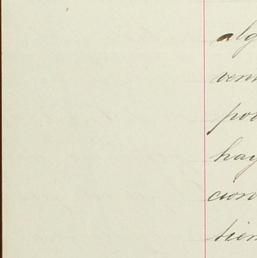 alg
ven
poc
hay
cion
tien